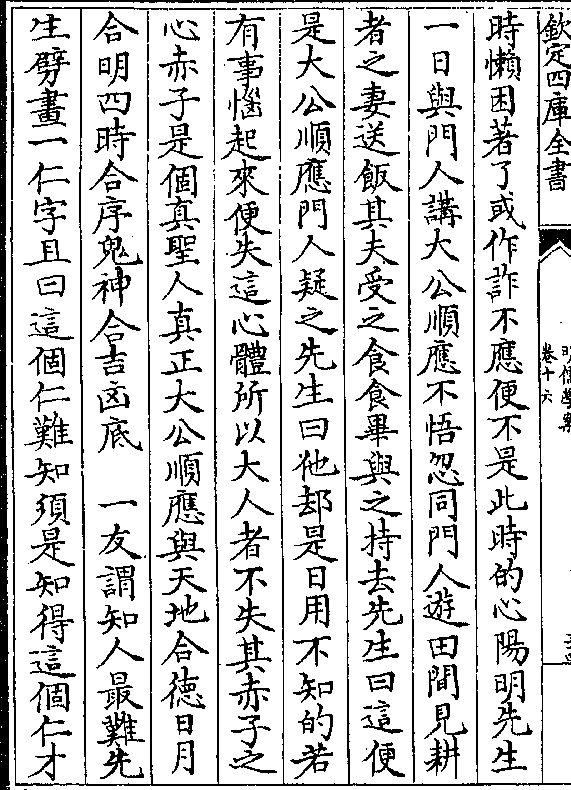 欽定四庫全書
明儒學案
卷十六
時懶困著了或作詐不應便不是此時的心陽明先生
一日與門人講大公順應不悟忽同門人遊田間見耕
者之妻送飯其夫受之食食畢與之持去先生曰這便
是大公順應門人疑之先生曰他却是日用不知的若
有事惱起來便失這心體所以大人者不失其赤子之
心赤子是個真聖人真正大公順應與天地合德日月
合明四時合序鬼神合吉凶底 一友謂知人最難先
生劈畫一仁字且曰這個仁難知須是知得這個仁才